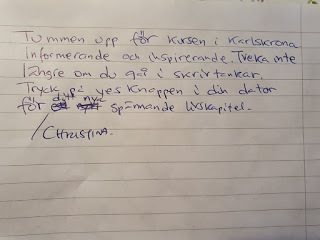 Tummen upp för kursen i Karlskrona
informerande och inspirerande. Tveka inte
längre om du går i skrivtankar.
Tryck på yes knappen i din dator
för ditt nya spännande livskapitel.
CHRISTINA.